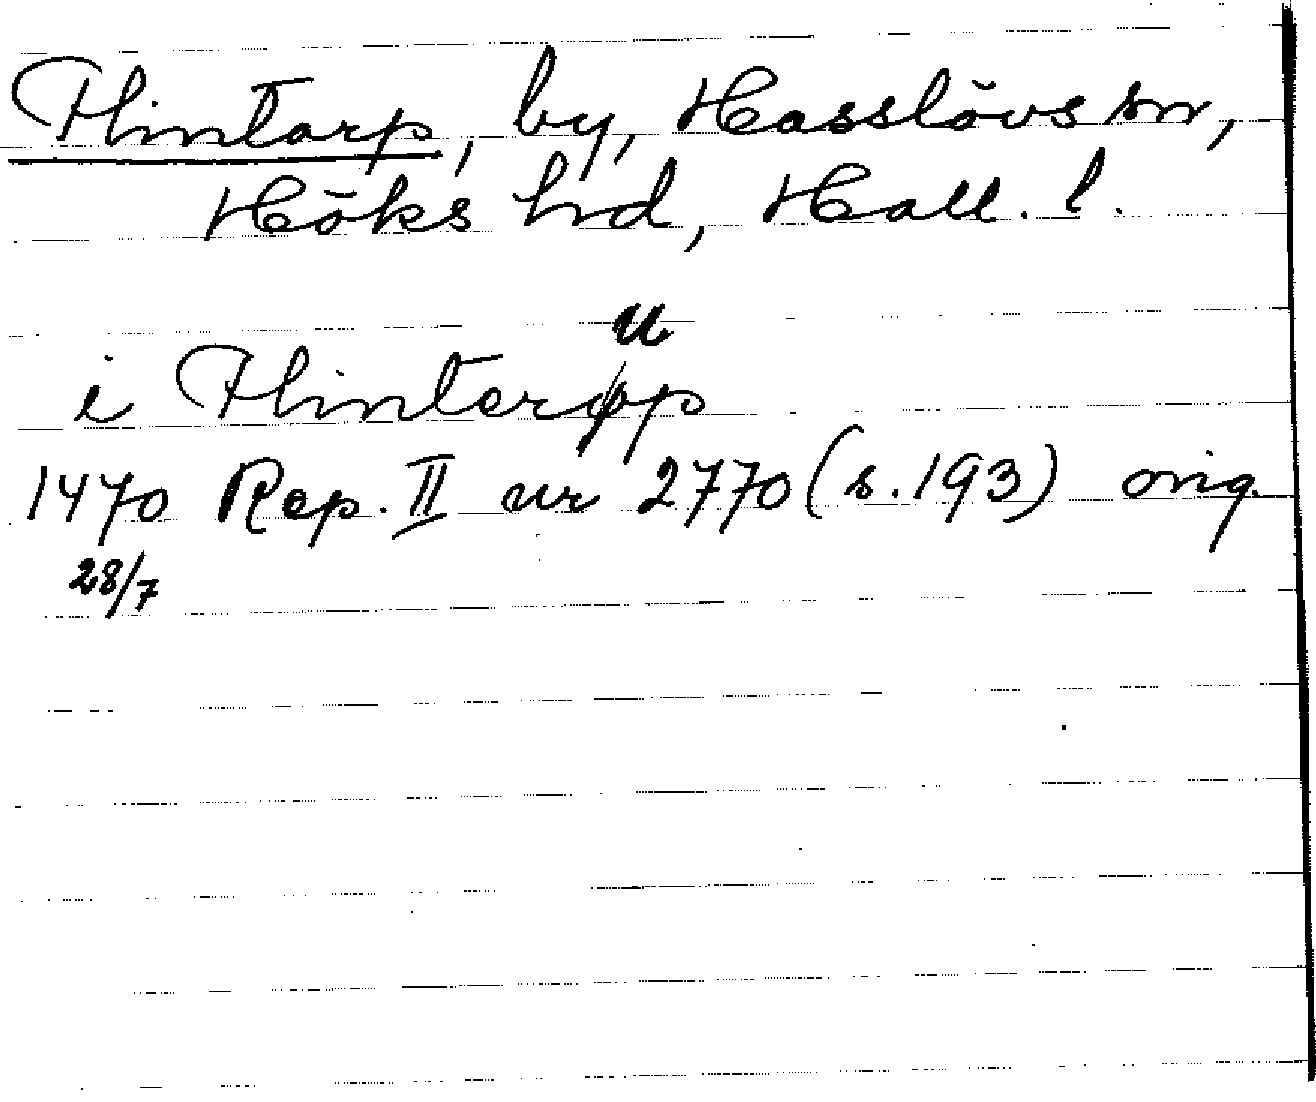 Flintarp, by, Hasslövs sn,
Höks hd, Hall. l.
i Flinterupp
1470 Rep. II nr 2770 (s. 193) orig.
28/7